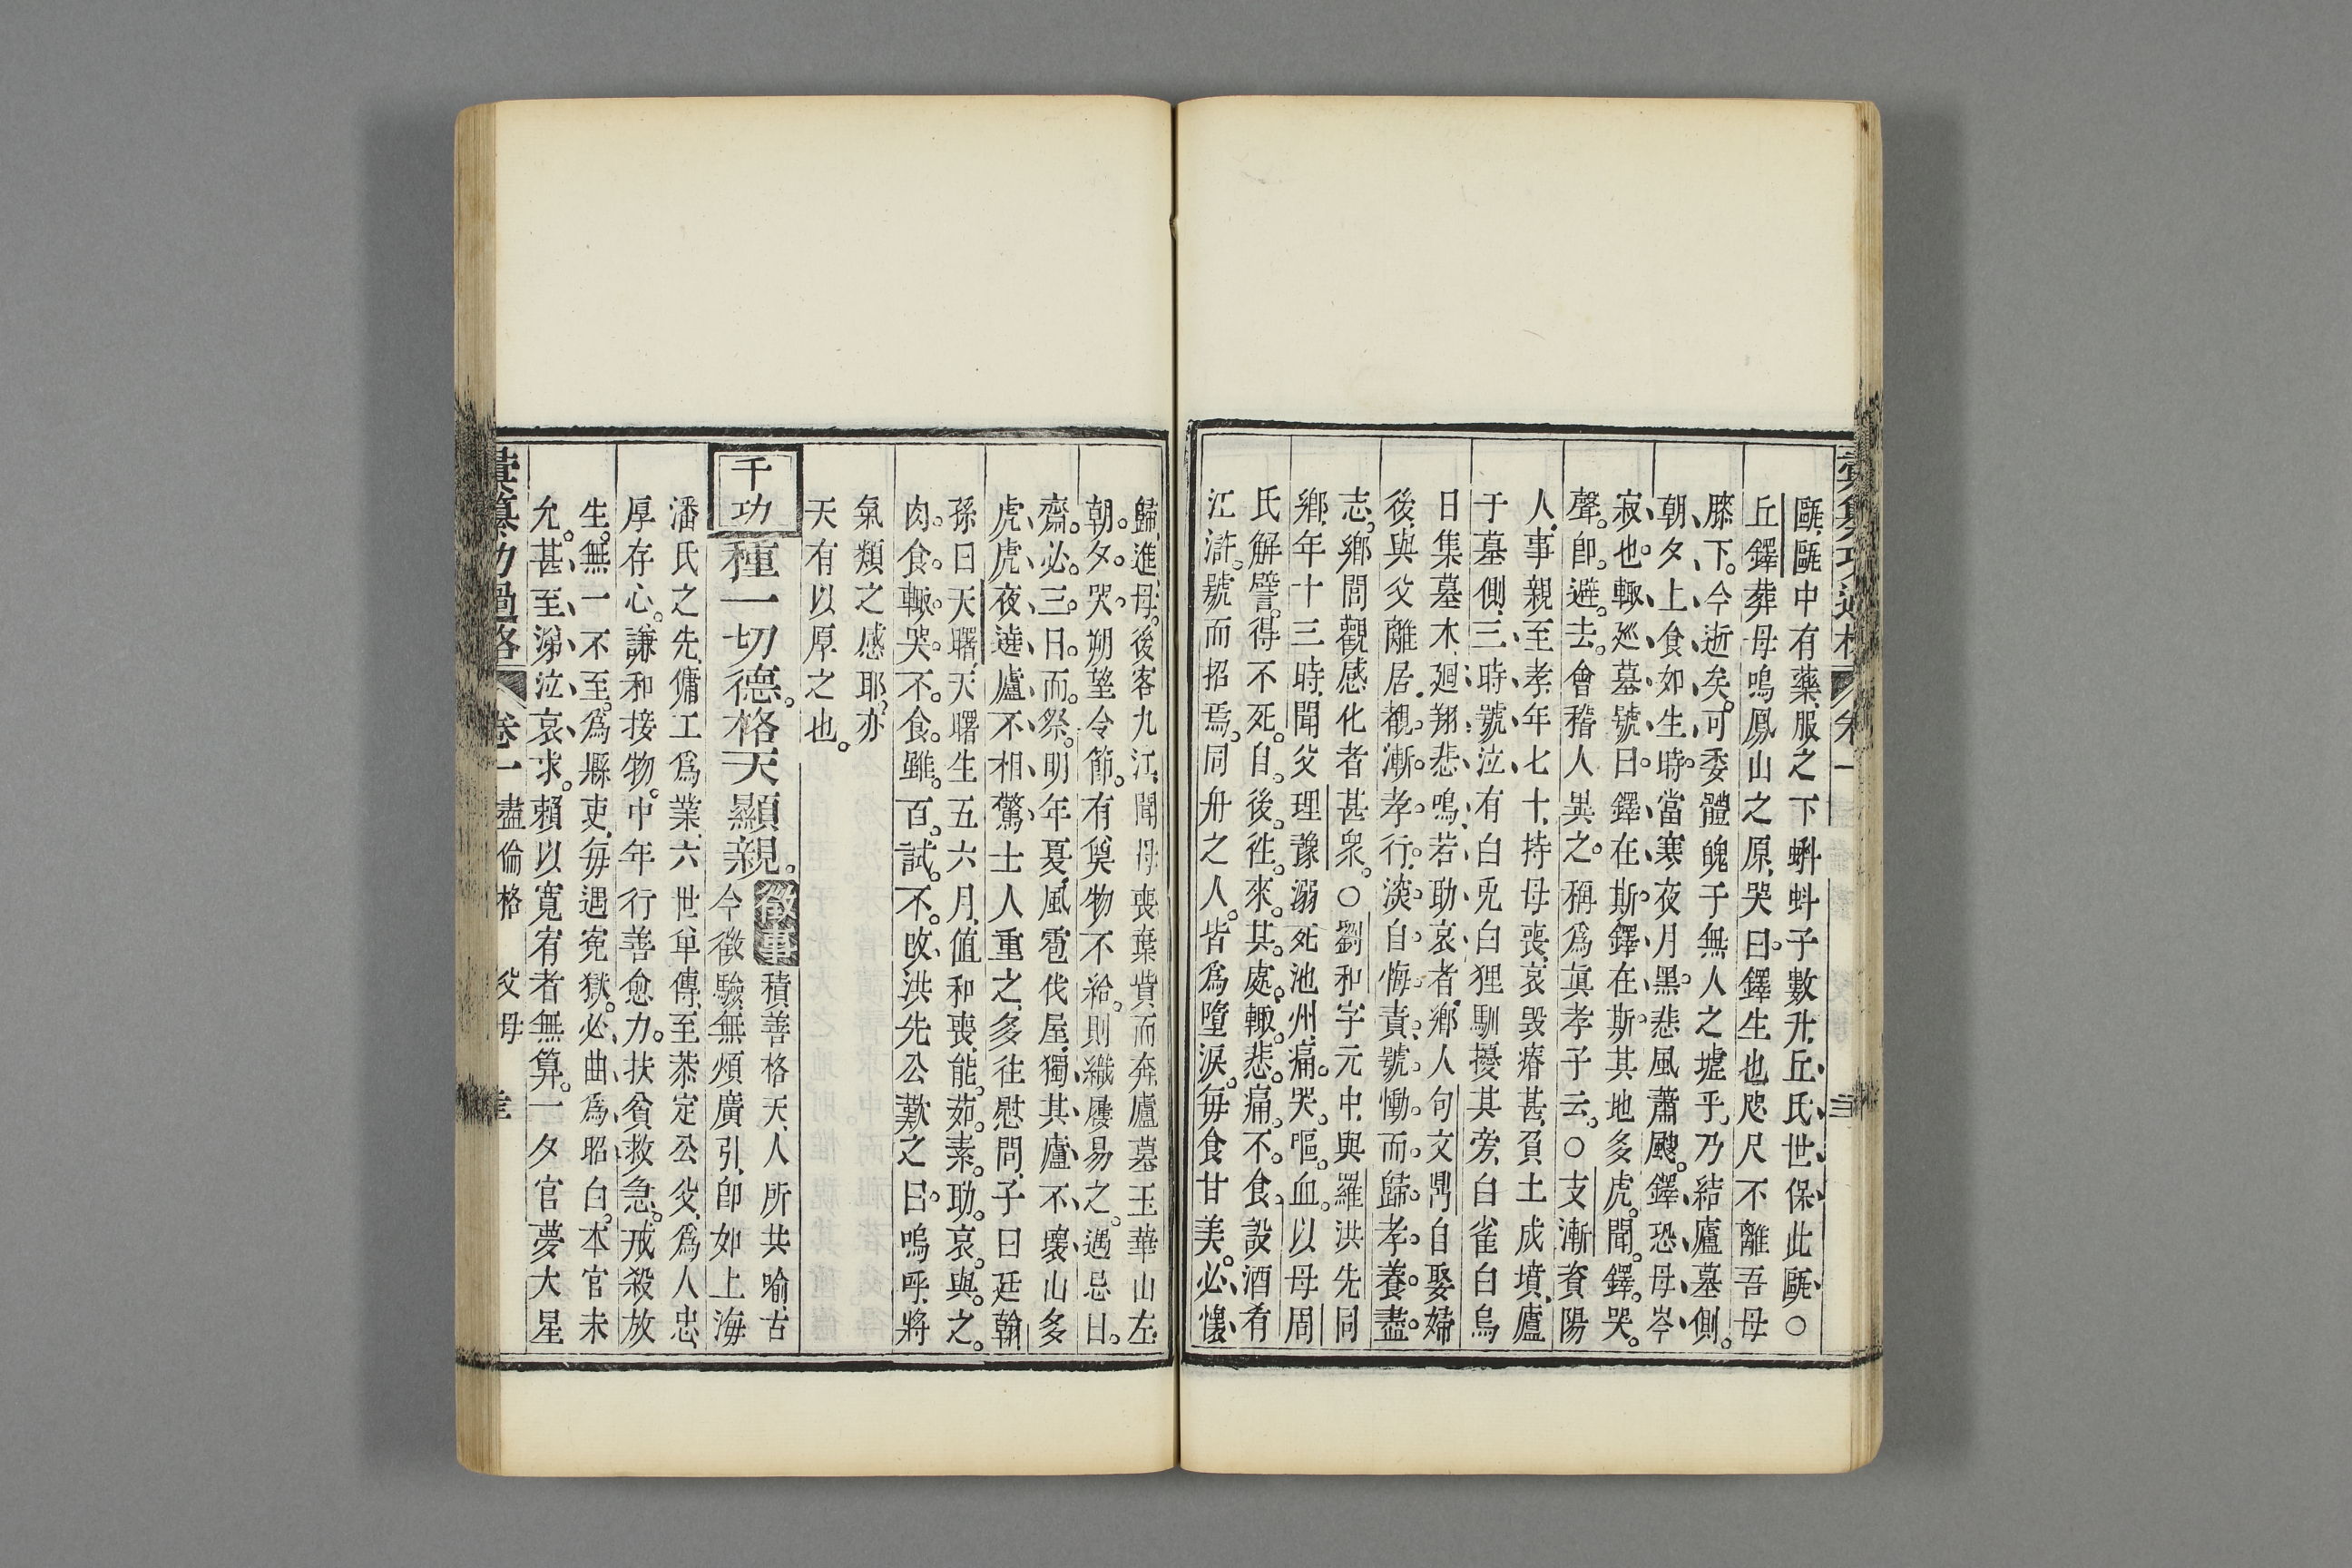 甌甌中有藥服之下蝌蚪子數升丘氏世保此甌○
丘鐸葬母鳴鳳山之原哭曰鐸生也咫尺不離吾母
膝下今逝矣可委體魄于無人之墟乎乃結廬墓側
朝夕上食如生時當寒夜月黑悲風蕭颼鐸恐母岑
寂也輒廵墓號曰鐸在斯鐸在斯其地多虎聞鐸哭
聲卽避去會稽人異之稱爲眞孝子云○支漸資陽
人事親至孝年七十持母喪哀毀瘠甚負土成墳廬
于墓側三時號泣有白兎白狸馴擾其旁白雀白烏
日集墓木廻翔悲鳴若助哀者鄉人句文鼎自娶婦
後與父離居覩漸孝行深自悔責號慟而歸孝養盡
志鄉閭觀感化者甚衆○劉和字元中與羅洪先同
鄉年十三時聞父理豫溺死池州痛哭嘔血以母周
氏解譬得不死自後往來其處輒悲痛不食設酒肴
江滸號而招焉同舟之人皆爲墮淚每食甘美必懷
歸進母後客九江聞母喪棄貲而奔廬墓玉華山左
朝夕哭朔望令節有奠物不給則織屨易之遇忌日
齋必三日而祭明年夏風雹伐屋獨其廬不壞山多
虎虎夜遶廬不相驚士人重之多往慰問子曰廷翰
孫曰天曙天曙生五六月値和喪能茹素助哀與之
肉食輒哭不食雖百試不改洪先公歎之曰嗚呼將
氣類之感耶亦
天有以原之也
千功
種一切德格天顯親
徵事
積善格天人所共喻古
今徵驗無煩廣引卽如上海
潘氏之先傭工爲業六世單傳至恭定公父爲人忠
厚存心謙和接物中年行善愈力扶貧救急戒殺放
生無一不至爲縣吏每遇寃獄必曲爲昭白本官未
允甚至涕泣哀求賴以寬宥者無算一夕官夢大星
彙纂功過格 卷一 盡倫格 父母